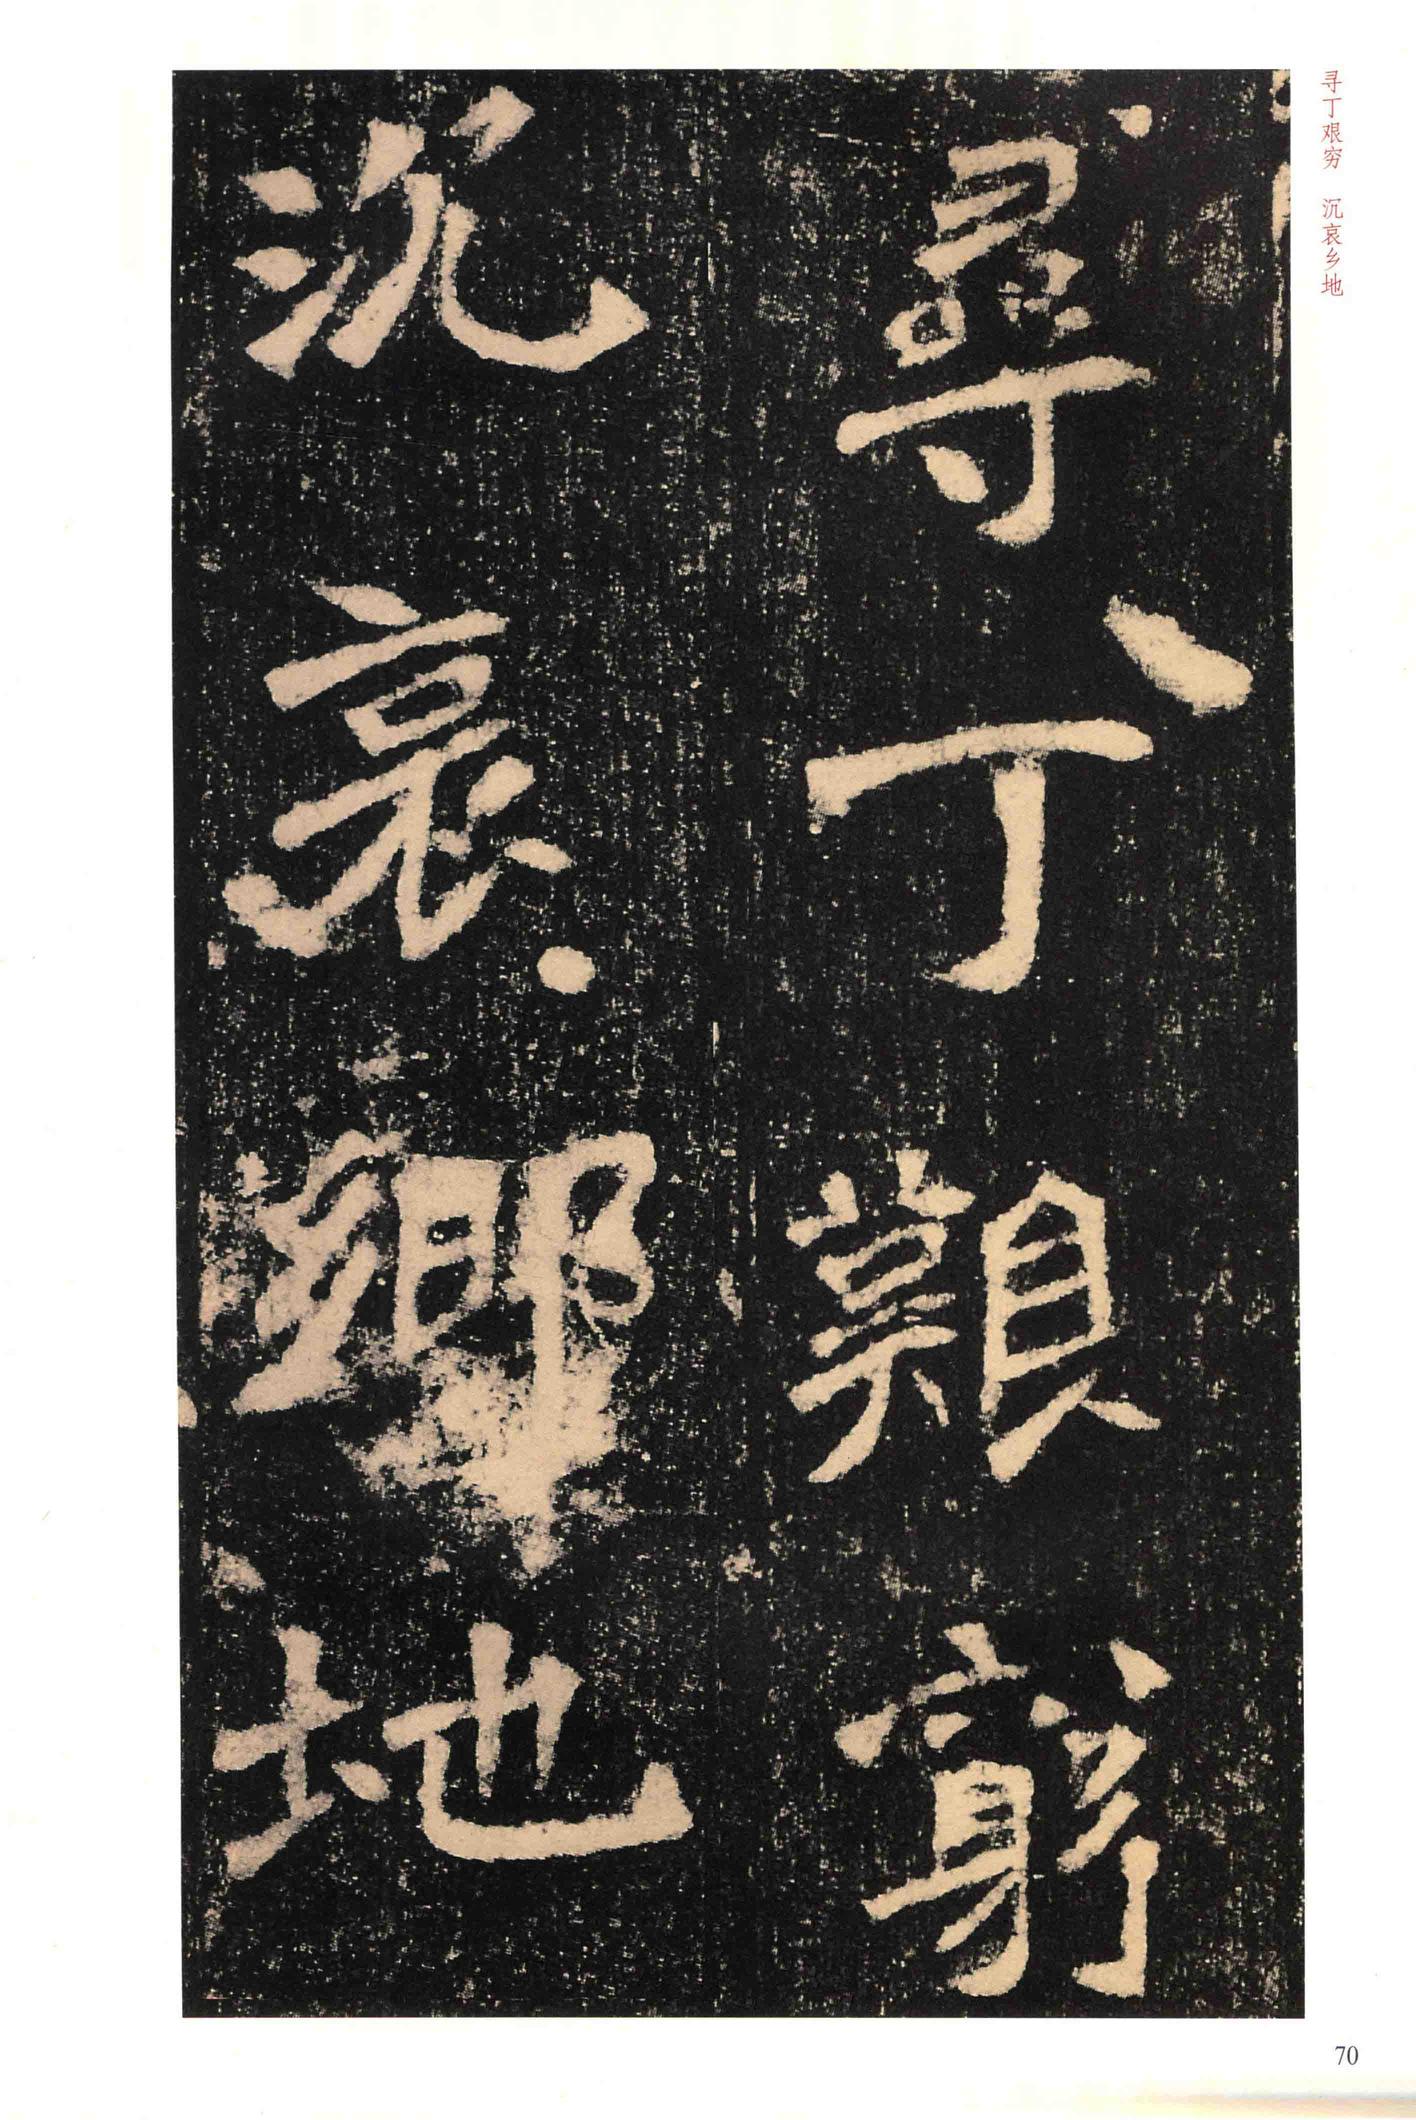 寻丁艰穷 沉哀乡地
尋丁艱窮
沉哀鄉地
70